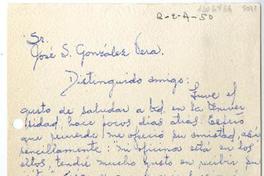 R-2-A-50
Sr.
José S. González Vera.
Distinguido amigo:
Tuve el
gusto de saludar a Ud. en la Univer
sidad, hace pocos días atras. Espero
que recuerde me ofreció su amistad, así
sencillamente: mi oficina está en los
altos, tendré mucho gusto en recibir su